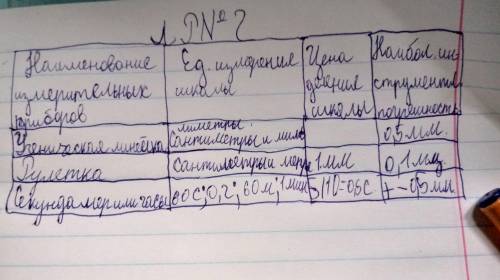 Л.Р№2
Наименование измерительных приборов
Ед. измерения шкалы
Цена деление шкалы
Наибол. инструмента погрешность
Ученическая линейка
сантиметры и милиметры
0,5 мм.
Рулетка
сантиметры и метры
1 мм
0,1 мм
Секундамер или часы
60 с; 0,2; 60 м; 1 мин
+-0,5 мм